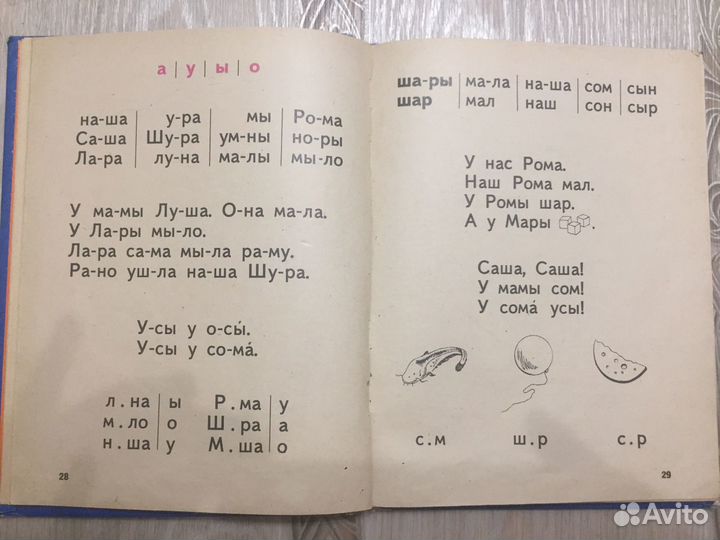 а | у | ы | о
на-ша | у-ра | мы | Ро-ма
Са-ша | Шу-ра | ум-ны | но-ры
Ла-ра | лу-на | ма-лы | мы-ло
У ма-мы Лу-ша. О-на ма-ла.
У Ла-ры мы-ло.
Ла-ра са-ма мы-ла ра-му.
Ра-но уш-ла на-ша Шу-ра.
У-сы у о-сы́.
У-сы у со-ма́.
л.на | ы Р.ма | у
м.ло | о Ш.ра | а
н.ша | у М.ша | о
28
ша-ры | ма-ла | на-ша | сом | сын
шар | мал | наш | сон | сыр
У нас Рома.
Наш Рома мал.
У Ромы шар.
А у Мары .
Саша, Саша!
У мамы сом!
У сома́ усы!
с.м ш.р с.р
29
Avito